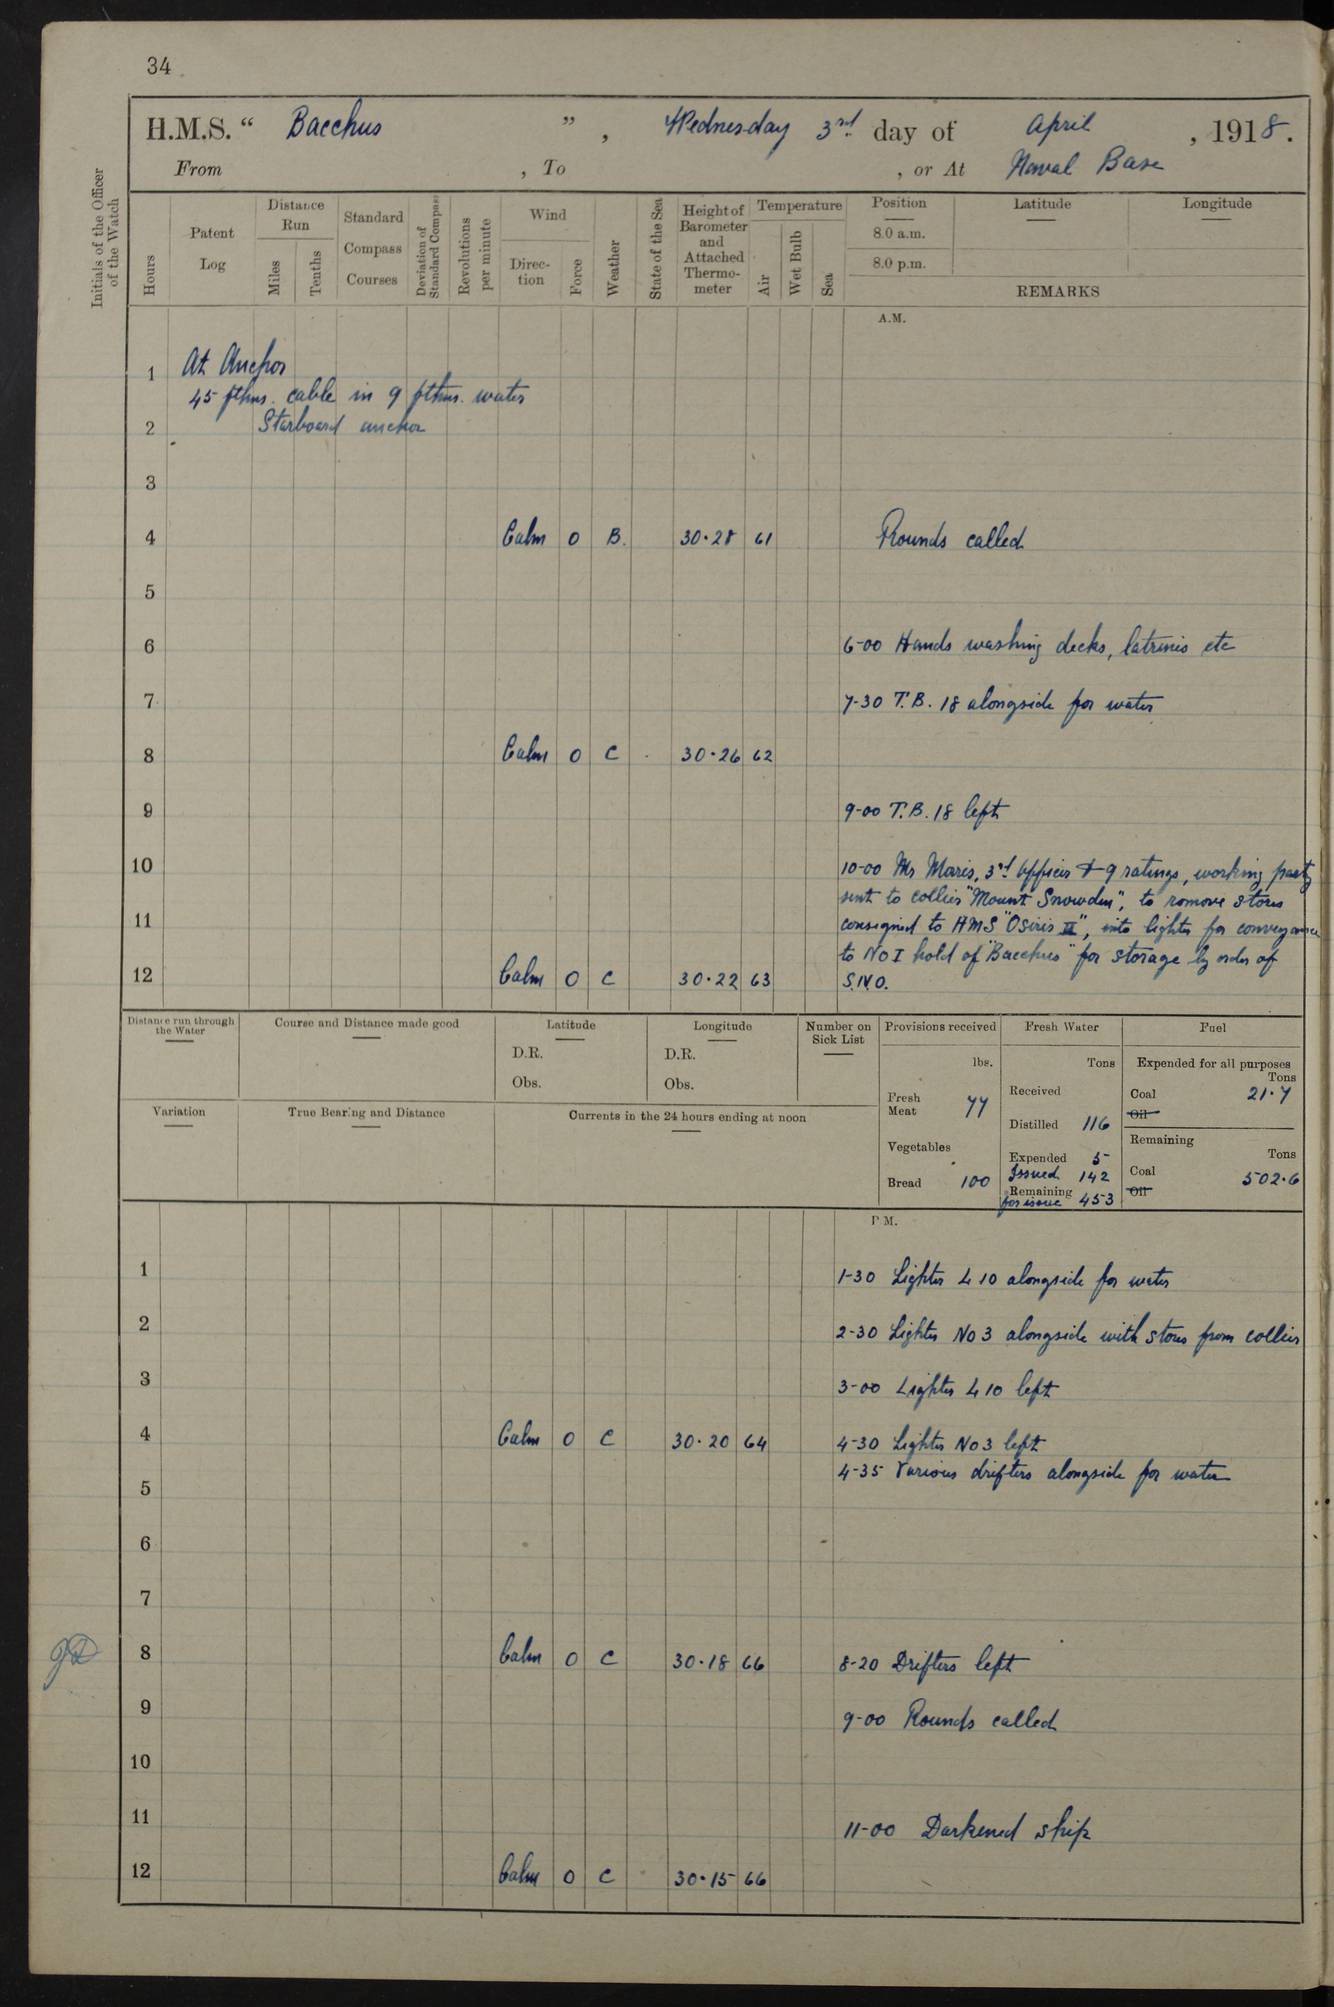 34
H.M.S. “ Bacchus ” , Wednesday 3rd day of April , 1918.
From , To , or At Naval Base
Initials of the Officer of the Watch
Hours
Patent Log
Distance Run
Miles
Tenths
Standard Compass Courses
Deviation of Standard Compass
Revolutions per minute
Wind
Direction
Force
Weather
State of the Sea
Height of Barometer and Attached Thermometer
Temperature
Air
Wet Bulb
Sea
Position
8.0 a.m.
8.0 p.m.
Latitude
Longitude
REMARKS
A.M.
1 At Anchor
45 fthms. cable in 9 fthms. water
2 Starboard anchor
3
4 Calm 0 B. 30·28 61 Rounds called
5
6 6-00 Hands washing decks, latrines etc
7 7-30 T.B. 18 alongside for water
8 Calm 0 C 30·26 62
9 9-00 T.B. 18 left
10 10-00 Mr Maris, 3rd Officer + 9 ratings, working party
sent to collier "Mount Snowden", to romove stores
11 consigned to HMS "Osiris II", into lighter for conveyance
to No I hold of "Bacchus" for storage by order of
12 Calm 0 C 30·22 63 S.N.O.
Distance run through the Water
Course and Distance made good
Latitude
D.R.
Obs.
Longitude
D.R.
Obs.
Number on Sick List
Provisions received
lbs.
Fresh Meat 77
Vegetables
Bread 100
Fresh Water
Tons
Received
Distilled 116
Expended 5
Issued 142
Remaining for issue 453
Fuel
Expended for all purposes
Tons
Coal 21·7
Oil
Remaining
Tons
Coal 502·6
Oil
Variation
True Bearing and Distance
Currents in the 24 hours ending at noon
P.M.
1 1-30 Lighter L 10 alongside for water
2 2-30 Lighter No 3 alongside with stores from collier
3 3-00 Lighter L 10 left
4 Calm 0 C 30·20 64 4-30 Lighter No 3 left
4-35 Various drifters alongside for water
5
6
7
8 Calm 0 C 30·18 66 8-20 Drifters left
9 9-00 Rounds called
10
11 11-00 Darkened ship
12 Calm 0 C 30·15 66